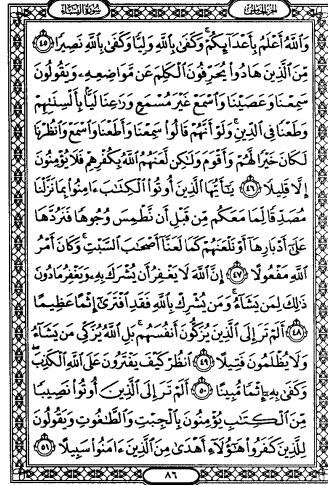 الجزء الخامس
سورة النساء
وَاللَّهُ أَعْلَمُ بِأَعْدَائِكُمْ وَكَفَىٰ بِاللَّهِ وَلِيًّا وَكَفَىٰ بِاللَّهِ نَصِيرًا ٤٥
مِّنَ الَّذِينَ هَادُوا يُحَرِّفُونَ الْكَلِمَ عَن مَّوَاضِعِهِ وَيَقُولُونَ
سَمِعْنَا وَعَصَيْنَا وَاسْمَعْ غَيْرَ مُسْمَعٍ وَرَاعِنَا لَيًّا بِأَلْسِنَتِهِمْ
وَطَعْنًا فِي الدِّينِ وَلَوْ أَنَّهُمْ قَالُوا سَمِعْنَا وَأَطَعْنَا وَاسْمَعْ وَانظُرْنَا
لَكَانَ خَيْرًا لَّهُمْ وَأَقْوَمَ وَلَٰكِن لَّعَنَهُمُ اللَّهُ بِكُفْرِهِمْ فَلَا يُؤْمِنُونَ
إِلَّا قَلِيلًا ٤٦ يَا أَيُّهَا الَّذِينَ أُوتُوا الْكِتَابَ آمِنُوا بِمَا نَزَّلْنَا
مُصَدِّقًا لِّمَا مَعَكُم مِّن قَبْلِ أَن نَّطْمِسَ وُجُوهًا فَنَرُدَّهَا
عَلَىٰ أَدْبَارِهَا أَوْ نَلْعَنَهُمْ كَمَا لَعَنَّا أَصْحَابَ السَّبْتِ وَكَانَ أَمْرُ
اللَّهِ مَفْعُولًا ٤٧ إِنَّ اللَّهَ لَا يَغْفِرُ أَن يُشْرَكَ بِهِ وَيَغْفِرُ مَا دُونَ
ذَٰلِكَ لِمَن يَشَاءُ وَمَن يُشْرِكْ بِاللَّهِ فَقَدِ افْتَرَىٰ إِثْمًا عَظِيمًا
٤٨ أَلَمْ تَرَ إِلَى الَّذِينَ يُزَكُّونَ أَنفُسَهُم بَلِ اللَّهُ يُزَكِّي مَن يَشَاءُ
وَلَا يُظْلَمُونَ فَتِيلًا ٤٩ انظُرْ كَيْفَ يَفْتَرُونَ عَلَى اللَّهِ الْكَذِبَ
وَكَفَىٰ بِهِ إِثْمًا مُّبِينًا ٥٠ أَلَمْ تَرَ إِلَى الَّذِينَ أُوتُوا نَصِيبًا
مِّنَ الْكِتَابِ يُؤْمِنُونَ بِالْجِبْتِ وَالطَّاغُوتِ وَيَقُولُونَ
لِلَّذِينَ كَفَرُوا هَٰؤُلَاءِ أَهْدَىٰ مِنَ الَّذِينَ آمَنُوا سَبِيلًا ٥١
٨٦